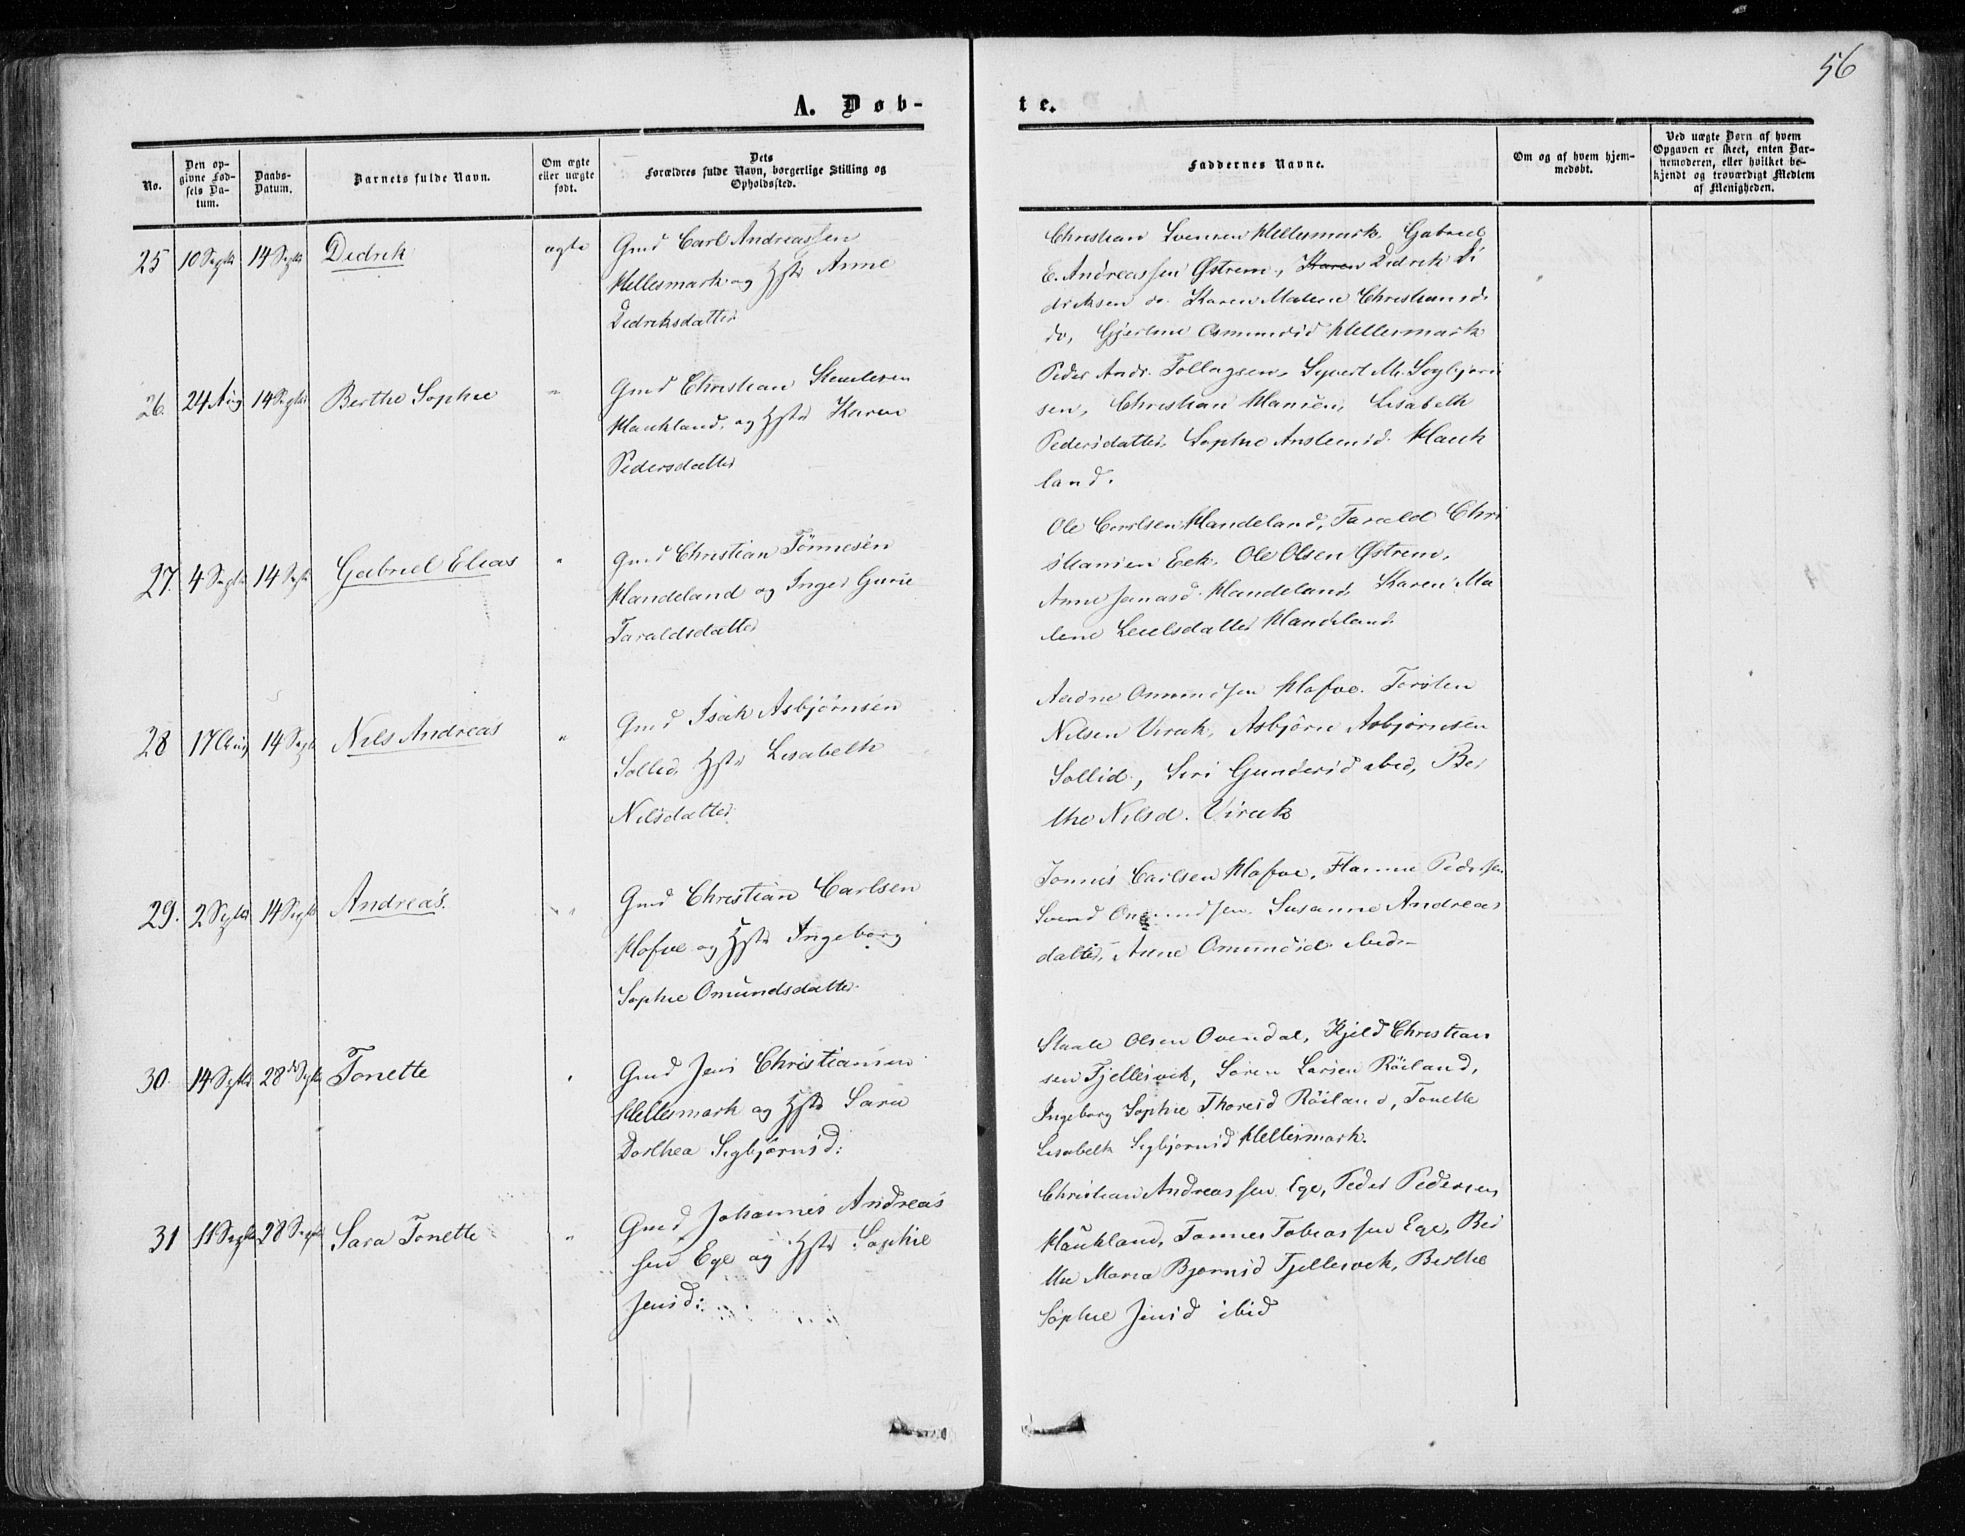 56
A. Døb-
te.
No.
Den op-
givne Fød-
sels Da-
tum.
Daabs-
Datum.
Barnets fulde Navn.
Om ægte
eller uægte
født.
Dets
Forældres fulde Navn, borgerlige Stilling og
Opholdssted.
Faddernes Navne.
Om og af hvem hjem-
medøbt.
Ved uægte Børn af hvem
Opgaven er skeet, enten Bar-
nemoderen, eller hvilket be-
kjendt og troværdigt Medlem
af Menigheden.
25 10 Septbr 14 Septbr Didrik ægte Gmd Carl Andreassen
Hellesmark og Hstr Anne
Didriksdatter
Christian Svensen Hellesmark. Gabriel
E. Andreassen Østrem, Karen Didrik Di
driksen do. Karen Malene Christiansd.
do, Gjertine Osmundsd Hellesmark
26. 24 Aug 14 Septbr Berthe Sophie " Gmd Christian
Haukland, og Hstr Karen
Pedersdatter
Peder Andr. Tollagsen, Syvert M. Sigbjørn
sen, Christian Hansen, Lisabeth
Pedersdatter, Sophie Anstensd. Hauk
land.
27. 4 Septbr 14 Septbr Gabriel Elias " Gmd Christian Tönnesen
Handeland og Inger Gurie
Taraldsdatter
Ole Carlsen Handeland, Tarald Chri
stiansen Eek. Ole Olsen Østrem,
Anne Jonasd. Handeland, Karen Ma
lene Leulsdatter Handeland
28 17 Aug 14 Septb Nils Andreas " Gmd Isak Asbjørnsen
Sollid, Hstr Lisabeth
Nilsdatter
Aadne Omundsen Hafve. Torsten
Nilsen Virak, Asbjörn Asbjørnsen
Sollid, Siri Gundersd ibid, Ber
the Nilsd. Virak
29. 2 Septbr 14 Septbr Andreas. " Gmd Christian Carlsen
Hafve og Hstr Ingeborg
Sophie Omundsdatter
Tönnes Carlsen Hafve, Hanne Pedersen
Svend Omundsen. Susanne Andreas
datter, Anne Omundsd. ibid
30. 14 Septbr 28de Septbr Tonette " Gmd Jens Christiansen
Hellesmark og Hstr Sara
Dorthea Sigbjörnsd:
Staale Olsen Ovendal, Kjeld Christian
sen Fjellesvek, Sören Larsen Röiland,
Ingeborg Sophie Thoresd Röiland, Tonette
Lisabeth Sigbjørnsd Hellesmark.
31 11 Septbr 28 Septbr Sara Tonette " Gmd Johannes Andreas
sen Ege og Hstr Sophie
Jensd:
Christian Andreassen Ege, Peder Pedersen
Haukland, Tønnes Tobiassen Ege, Ber
the Maria Bjørnsd Fjellesvek, Berthe
Sophie Jensd ibid